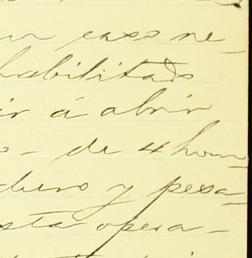 un caso ne-
habilitado
ir á abrir
o - de 4 hom
duro y pesa-
sta opera-